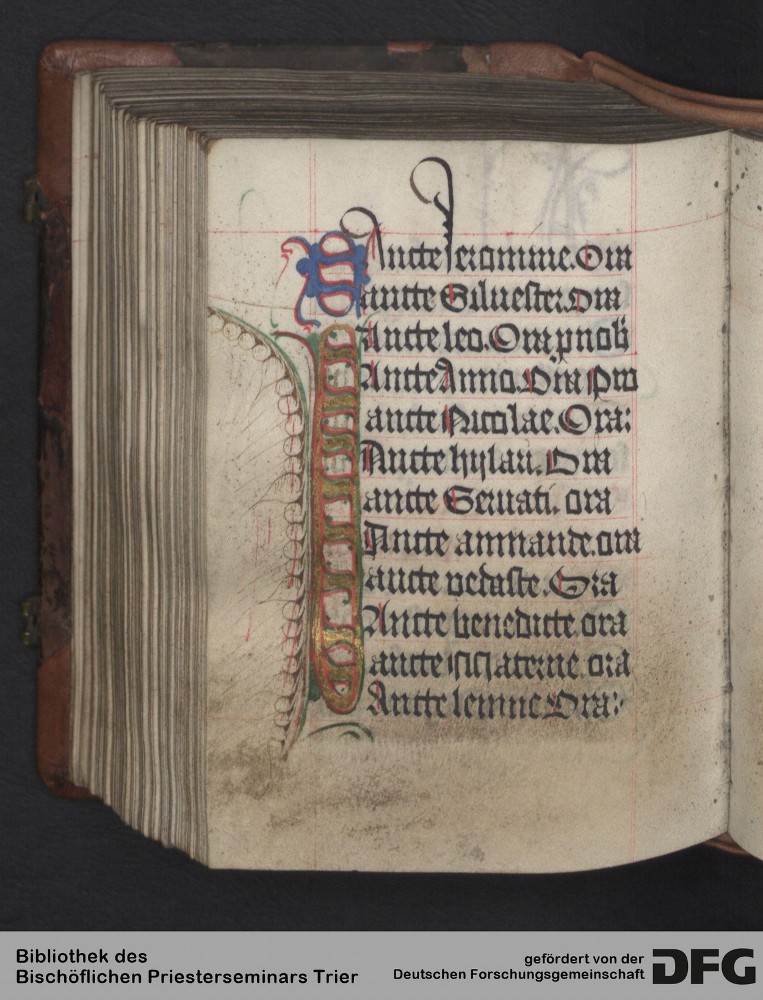 SAncte Jeronime. Ora
Sancte Siluester. Ora
SAncte leo. Ora p nob
SAncte Anno. Ora Pro
Sancte Nicolae. Ora:
SAncte hylari. Ora
Sancte Seruati. ora
SAncte amande. ora
Sancte vedaste. Ora
SAncte benedicte. ora
Sancte ora
SAncte Ora:
Bibliothek des
Bischöflichen Priesterseminars Trier
gefördert von der
Deutschen Forschungsgemeinschaft
DFG